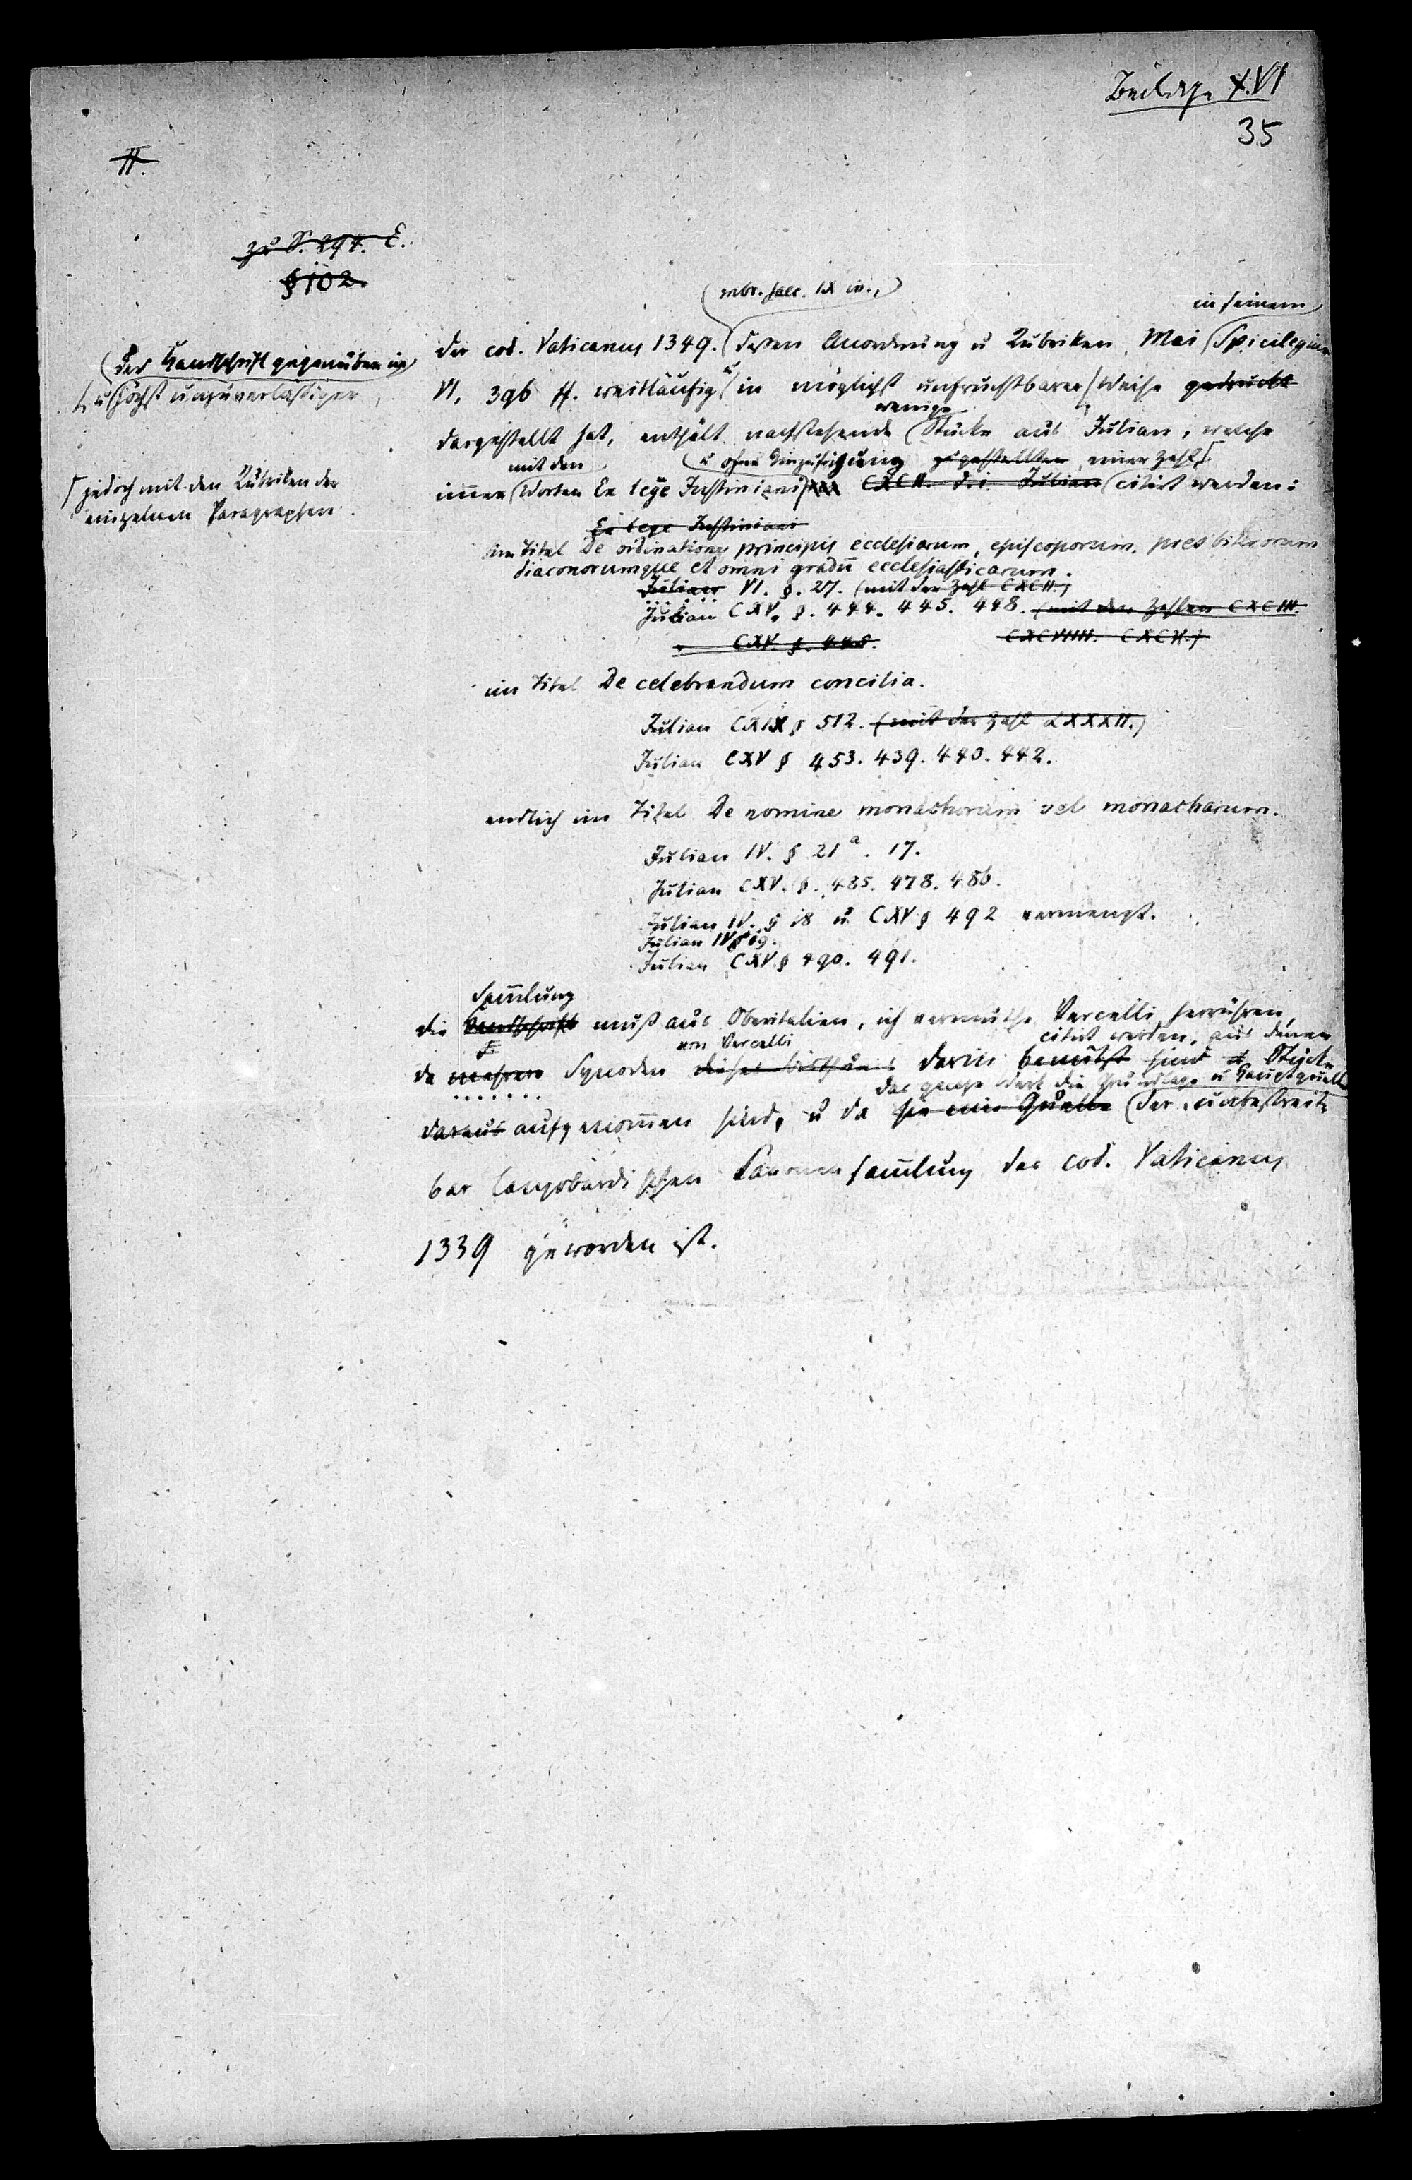 Beilage XVI
35
II.
zu S. 294. E.
§ 102
(mbr. saec. IX in.,)
in seinem
Der cod. Vaticanus 1349. dessen Anordnung u Rubriken Mai Spicilegium
(der Handschrift gegenüber in
u höchst unzuverlässiger
VI, 396 ff. weitläufig u in möglichst unfruchtbarer Weise gedruckt
wenige
dargestellt hat, enthält nachstehende Stücke aus Julian, welche
mit den
u ohne Hinzufügung zugestellten einer Zahl
immer Worten Ex lege Justiniani CXCII. Julian citirt werden:
jedoch mit den Rubriken der
einzelnen Paragraphen.
Ex lege Justiniani
im Titel De ordinatione principis ecclesiarum, episcoporum, presbiterorum
diaconorumque et omni gradu ecclesiasticarum.
Julian VI. §. 27. (mit der Zahl CXCII.)
Julian CXV. §. 444. 445. 448. (mit den Zahlen CXCIII.
CXV. §. 448.
CXCVIIII. CXCV.)
im Titel De celebrandum concilia.
Julian CXIX § 512. (mit der Zahl LXXXII.)
Julian CXV § 453. 439. 440. 442.
endlich im Titel De nomine monachorum vel monacharum.
Julian IV. § 21 a. 17.
Julian CXV. §. 485. 478. 486.
Julian IV. § 18 u. CXV § 492 vermengt.
Julian IV § 19.
Julian CXV § 490. 491.
Sammlung
die Handschrift muß aus Oberitalien, ich vermuthe Vercelli herrühren,
von Vercelli
citirt werden, aus denen
da mehrere Synoden dieses Bisthums darin benützt sind Stücke
das ganze Werk die Grundlage u Hauptquelle
daraus aufgenommen sind, u da sie eine Quelle der unbestreit
bar langobardischen Canonensammlung des cod. Vaticanus
1339 geworden ist.